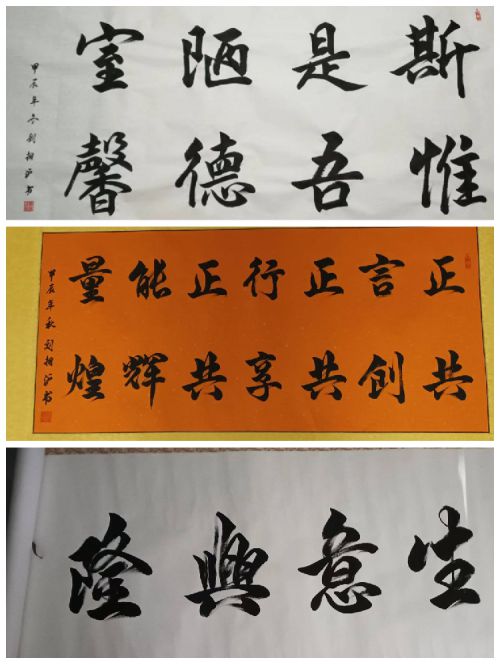 斯是陋室
惟吾德馨
甲辰年冬刘沪书
正言正行正能量
共创共享共輝煌
甲辰年秋刘沪书
生意興隆